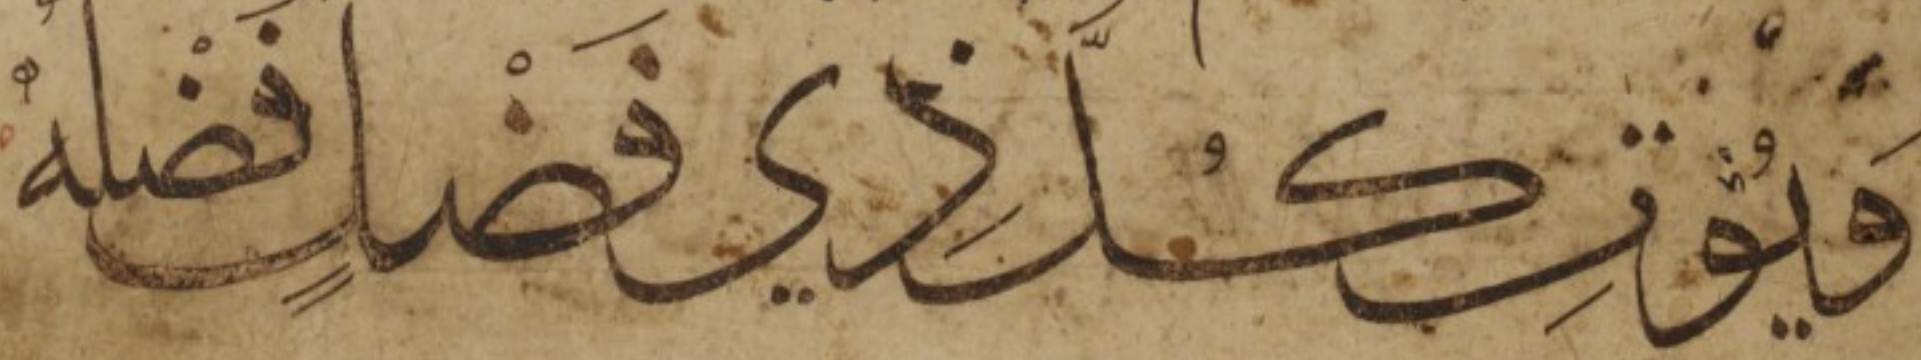 وَيُؤْتِ كُلَّ ذِي فَضْلٍ فَضْلَهُ